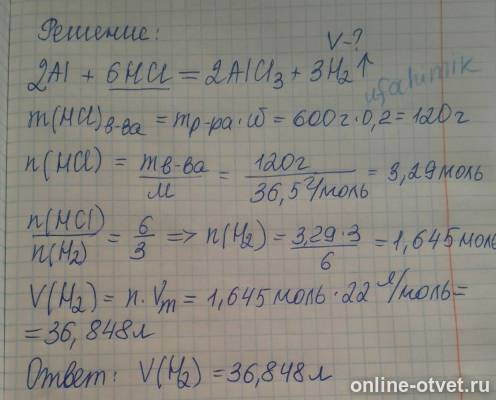 Решение:
V-?
2Al + 6HCl = 2AlCl₃ + 3H₂↑
ufahimik
m(HCl)в-ва = mр-ра · ω = 600г · 0,2 = 120г
n(HCl) = mв-ва/M = 120г/36,5г/моль = 3,29моль
n(HCl)/n(H₂) = 6/3 => n(H₂) = 3,29·3/6 = 1,645моль
V(H₂) = n · Vm = 1,645моль · 22л/моль =
= 36,848л
Ответ: V(H₂) = 36,848л
online-otvet.ru